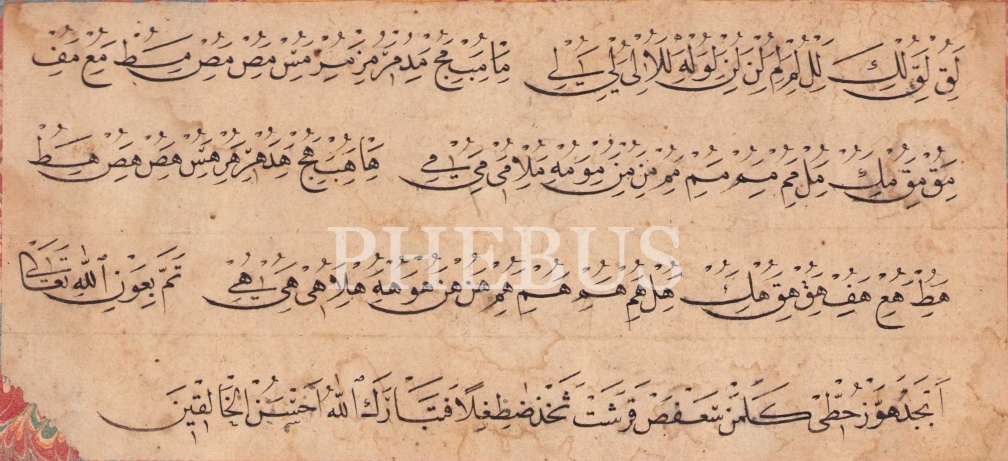 لق لق لك لل لم لم لن لن لو له للا لى لى ما مب مج مد مر مر مس مص مص مط مع مف
مق مق مك مل مم مم مم من من مو مه ملا مى مى ها هب هج هد هر هر هس هص هص هط
PHEBUS
هط هع هف هق هق هك هل هم هم هم هن هن هو هه هلا هى هى تَمَّ بِعَوْنِ ٱللّٰهِ تَعَالٰى
اَبْجَدْ هَوَّزْ حُطِّى كَلَمَنْ سَعْفَصْ قَرَشَتْ ثَخَذْ ضَظِغِلًا فَتَبَارَكَ ٱللّٰهُ اَحْسَنُ الْخَالِقِينَ